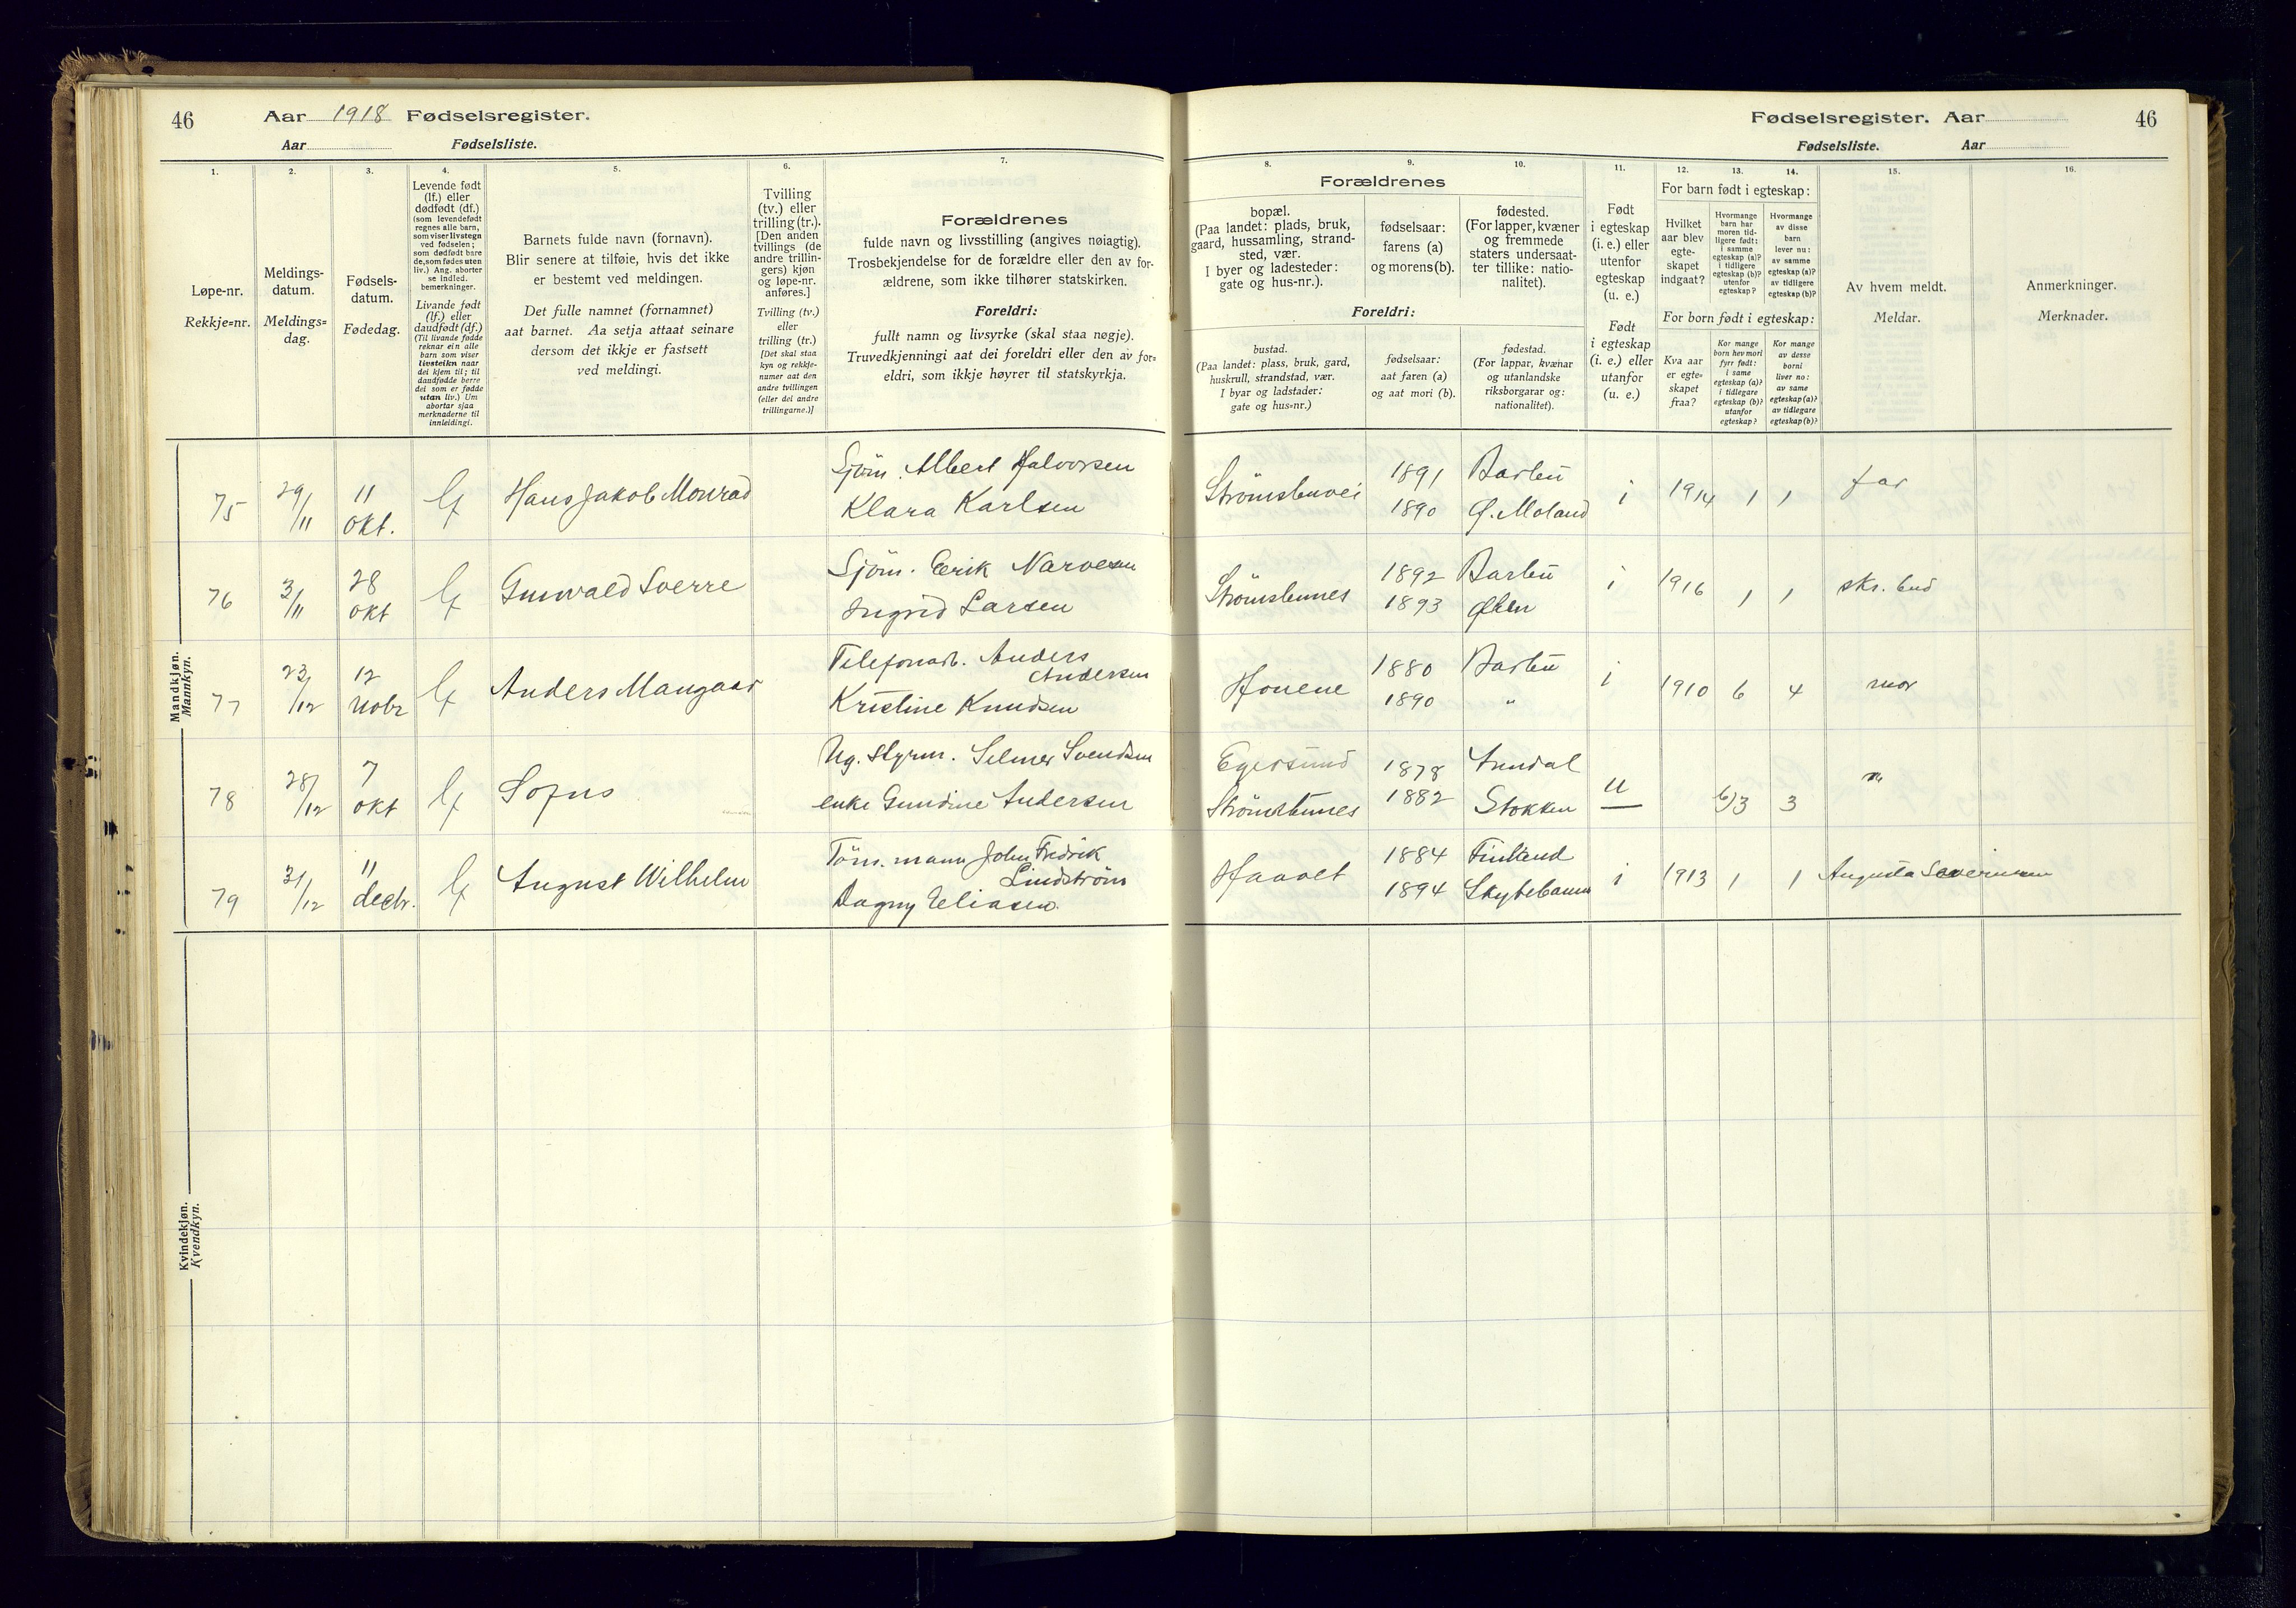 46
Aar 1918 Fødselsregister.
Aar Fødselsliste.
Fødselsregister. Aar
Fødselsliste. Aar
46
1.
Løpe-nr.
Rekkje=nr.
2.
Meldings-
datum.
Meldings=
dag.
3.
Fødsels-
datum.
Fødedag.
4.
Levende født
(lf.) eller
dødfødt (df.)
(som levendefødt
regnes alle barn,
som viser livstegn
ved fødselen;
som dødfødt bare
de, som fødes uten
liv.) Ang. aborter
se indled.
bemerkninger.
Livande født
(lf.) eller
daudfødt (df.)
(Til livande fødde
reknar ein alle
barn som viser
livsteikn naar
dei kjem til; til
daudfødde berre
dei som er fødde
utan liv.) Um
abortar sjaa
merknaderne til
innleidingi.
5.
Barnets fulde navn (fornavn).
Blir senere at tilføie, hvis det ikke
er bestemt ved meldingen.
Det fulle namnet (fornamnet)
aat barnet. Aa setja attaat seinare
dersom det ikkje er fastsett
ved meldingi.
6.
Tvilling
(tv.) eller
trilling (tr.).
[Den anden
tvillings (de
andre trillin-
gers) kjøn
og løpe-nr.
anføres.]
Tvilling (tv.)
eller
trilling (tr.)
[Det skal staa
kyn og rekkje-
numer aat den
andre tvillingen
(eller dei andre
trillingarne.)]
7.
Forældrenes
fulde navn og livsstilling (angives nøiagtig).
Trosbekjendelse for de forældre eller den av for-
ældrene, som ikke tilhører statskirken.
Foreldri:
fullt namn og livsyrke (skal staa nøgje).
Truvedkjenningi aat dei foreldri eller den av for=
eldri, som ikkje høyrer til statskyrkja.
8.
Forældrenes
bopæl.
(Paa landet: plads, bruk,
gaard, hussamling, strand-
sted, vær.
I byer og ladesteder:
gate og hus-nr.).
Foreldri:
bustad.
(Paa landet: plass, bruk, gard,
huskrull, strandstad, vær.
I byar og ladstader:
gate og hus=nr.)
9.
fødselsaar:
farens (a)
og morens (b).
fødselsaar:
aat faren (a)
og aat mori (b).
10.
fødested.
(For lapper, kvæner
og fremmede
staters undersaat-
ter tillike: natio-
nalitet).
fødestad.
(For lappar, kvænar
og utanlandske
riksborgarar og:
nationalitet).
11.
Født
i egteskap
(i. e.) eller
utenfor
egteskap
(u. e.)
Født
i egteskap
(i. e.) eller
utanfor
(u. e.)
12. 13. 14.
For barn født i egteskap:
Hvilket
aar blev
egte-
skapet
indgaat?
Hvormange
barn har
moren tid-
ligere født:
i samme
egteskap (a)?
i tidligere
egteskap (b)?
utenfor
egteskap?
Hvormange
av disse
barn
lever nu:
av samme
egteskap (a)?
av tidligere
egteskap (b)?
For born født i egteskap:
Kva aar
er egte=
skapet
fraa?
Kor mange
born hev mori
fyrr født:
i same
egteskap (a)?
i tidlegare
egteskap (b)?
utanfor
egteskap?
Kor mange
av desse
borni
liver no:
av same
egteskap (a)?
av tidlegare
egteskap (b)?
15.
Av hvem meldt.
Meldar.
16.
Anmerkninger.
Merknader.
Mandkjøn.
Mannkyn.
75 29/11 11 okt. lf Hans Jakob Monrad Sjøm. Albert Halvorsen Klara Karlsen Strømsbuvei 1891 1890 Barbu Ø. Moland i 1914 1 1 far
76 3/11 28 okt lf Gunvald Sverre Sjøm. Erik Narvesen Ingrid Larsen Strømsbunes 1892 1893 Barbu i 1916 1 1 skr. bud
77 23/12 12 nobr lf Anders Mangaar Telefonarb. Anders Andersen Kristine Knudsen 1880 1890 Barbu " i 1910 6 4 mor
78 28/12 7 okt lf Sofus Ug. styrm. Selmer Svendsen enke Gundine Andersen Egersund Strømsbunes 1878 1882 Arendal Stokken u b)3 3 "
79 31/12 11 decbr. lf August Wilhelm Tøm. mann John Fredrik Lindstrøm Dagny Eliasen. Haavet 1884 1894 Finland i 1913 1 1 Augusta Severinsen
Kvindekjøn.
Kvendkyn.